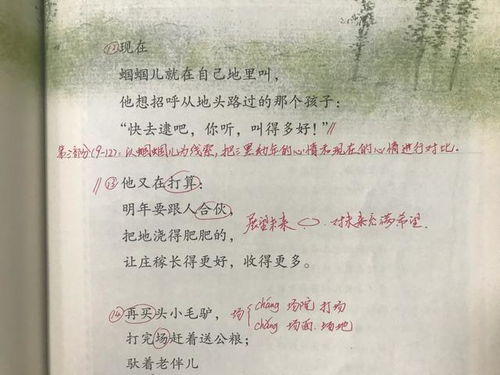 ⑫现在
蝈蝈儿就在自己地里叫,
他想招呼从地头路过的那个孩子:
“快去逮吧,你听,叫得多好!”//
第二部分(9-12):以蝈蝈儿为线索,把三黑幼年的心情和现在的心情进行对比.
//⑬他又在打算:
明年要跟人合伙,
展望未来 对未来充满希望.
把地浇得肥肥的,
让庄稼长得更好,收得更多。
⑭再买头小毛驴,
场 cháng 场院 打场
chǎng 场面 场地
打完场赶着送公粮;
驮着老伴儿